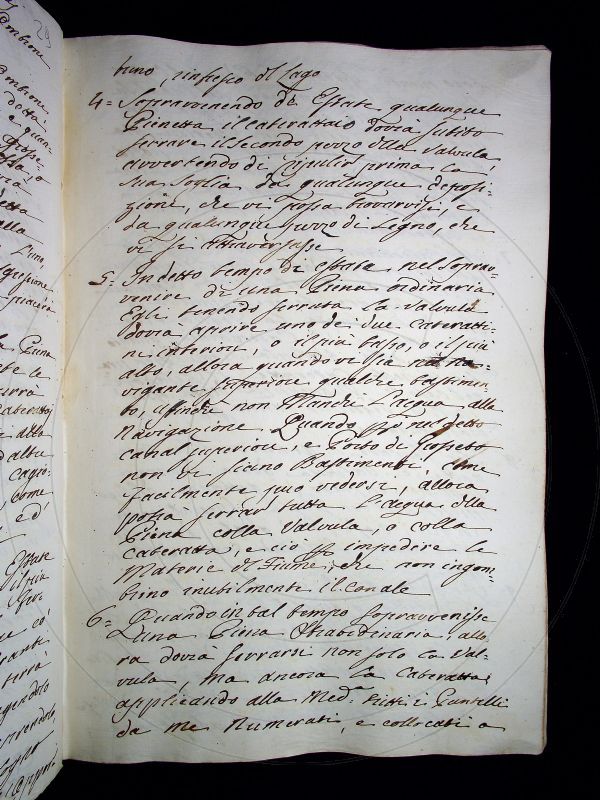 tuno, riflesso del Lago
4 = Sopravvenendo di Estate qualunque
Pienetta il cateratta io dovrà subito
serrare il secondo pezzo della Valvula,
avvertendo di ripulir prima la
sua soglia da qualunque deposi-
zione, che vi possa trovarsi, e
da qualunque pezzo di Legno, che
vi si attraversasse
5 = In detto tempo di estate nel soprav-
venire di una Piena ordinaria
Egli tenendo serrata la Valvula
dovrà aprire uno de due cateratti-
ni interiori, o il più basso, o il più
alto, allora quando vi sia na-
vigante superiore qualche bastimen-
to, affinché non Manchi l'acqua alla
Navigazione. Quando poi nel detto
canal superiore, e Porto di Grosseto
non vi siano Bastimenti, come
facilmente può vedersi, allora
potrà serrar tutta l'acqua della
Piena colla Valvula, o colla
cateratta, e ciò per impedire le
Materie del Fiume, che non ingom-
brino inutilmente il canale
6 = Quando in tal tempo sopravvenisse
una Piena Straordinaria, allo-
ra dovrà serrarsi non solo la Val-
vula, ma ancora la cateratta
applicando alla Med.a tutti i Puntelli
da me Numerati, e collocati a